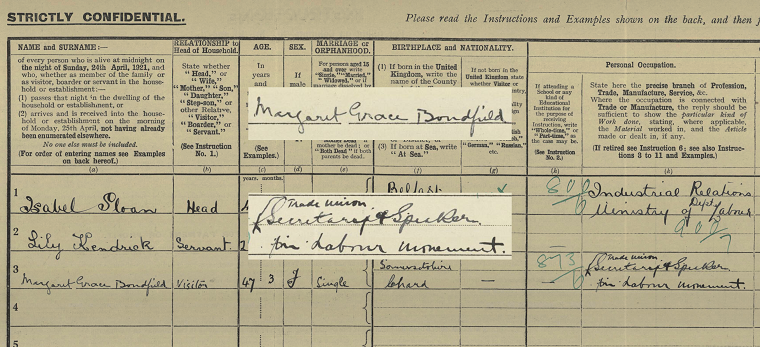 STRICTLY CONFIDENTIAL.
Please read the Instructions and Examples shown on the back, and then
NAME and SURNAME:—
of every person who is alive at midnight on
the night of Sunday, 24th April, 1921, and
who, whether as member of the family or
as visitor, boarder or servant in the house-
hold or establishment:—
(1) passes that night in the dwelling of the
household or establishment, or
(2) arrives and is received into the house-
hold or establishment on the morning
of Monday, 25th April, not having already
been enumerated elsewhere.
No one else must be included.
(For order of entering names see Examples
on back hereof.)
(a)
RELATIONSHIP to
Head of Household.
State whether
"Head," or
"Wife,"
"Mother," "Son,"
"Daughter,"
"Step-son," or
other Relative,
"Visitor,"
"Boarder," or
"Servant."
(See Instruction
No. 1.)
(b)
AGE.
In
years
and
(See
Examples.)
(c)
years. months.
SEX.
If
male
(d)
MARRIAGE or
ORPHANHOOD.
For persons aged 15
and over write
"Single," "Married,"
"Widowed," or if
marriage dissolved
mother be dead; or
"Both Dead" if both
parents be dead.
(e)
BIRTHPLACE and NATIONALITY.
(1) If born in the United
Kingdom, write the
name of the County
(3) If born at Sea, write
"At Sea."
(f)
If not born in the
United Kingdom
state whether
Visitor or
"German," "Russian,"
etc.
(g)
If attending a
School or any
kind of
Educational
Institution for
the purpose of
receiving
Instruction, write
"Whole-time," or
"Part-time," as
the case may be.
(See Instruction
No. 2.)
(h)
Personal Occupation.
State here the precise branch of Profession,
Trade, Manufacture, Service, &c.
Where the occupation is connected with
Trade or Manufacture, the reply should be
sufficient to show the particular kind of
Work done, stating, where applicable,
the Material worked in, and the Article
made or dealt in, if any.
(If retired see Instruction 6; see also Instruc-
tions 3 to 11 and Examples.)
(k)
Margaret Grace Bondfield
1
Isabel Sloan
Head
Belfast
Industrial Relations
Dept
Ministry of Labour
Trade Union
Secretary & Speaker
for Labour movement.
2
Lily Kendrick
Servant
3
Margaret Grace Bondfield
Visitor
47 3
F
Single
Somersetshire
Chard
—
873
Trade Union
Secretary & Speaker
for Labour movement.
4
5